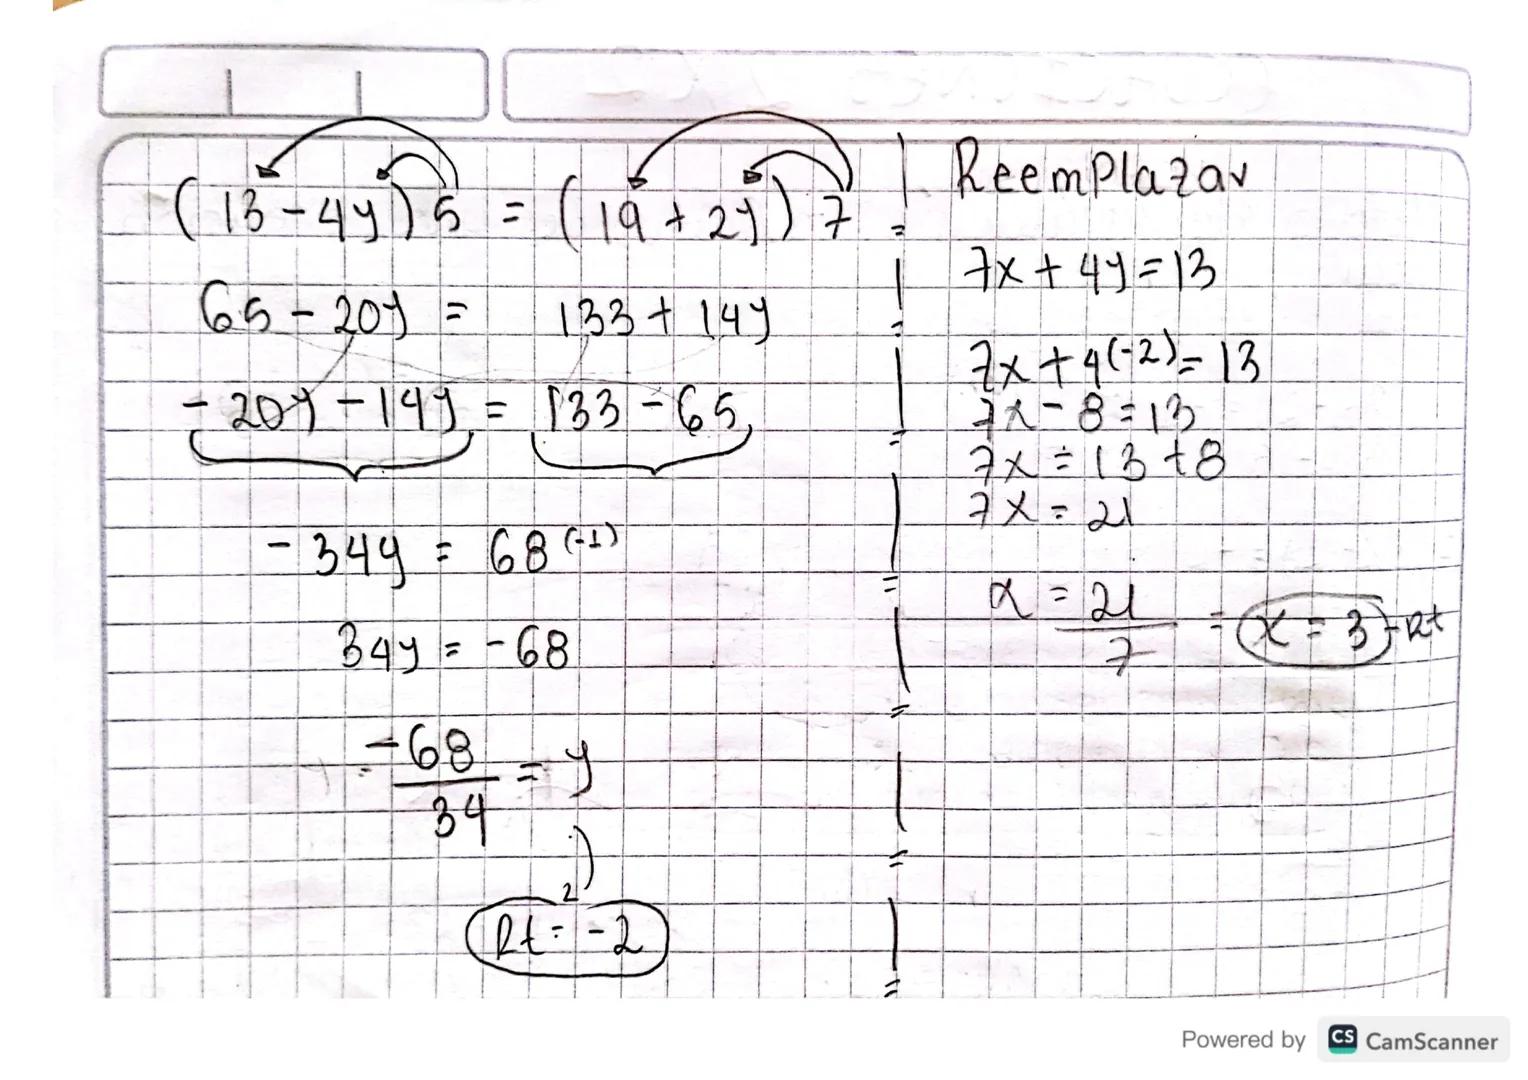 (13 - 4y) 5 = (19 + 2y) 7
65 - 20y = 133 + 14y
- 20y - 14y = 133 - 65
- 34y = 68 (-1)
34y = -68
-68
34
= y
Rt = -2
Reemplazar
7x + 4y = 13
7x + 4(-2) = 13
7x - 8 = 13
7x = 13 + 8
7x = 21
x = 21
7
= x = 3 - Rt
Powered by CS CamScanner